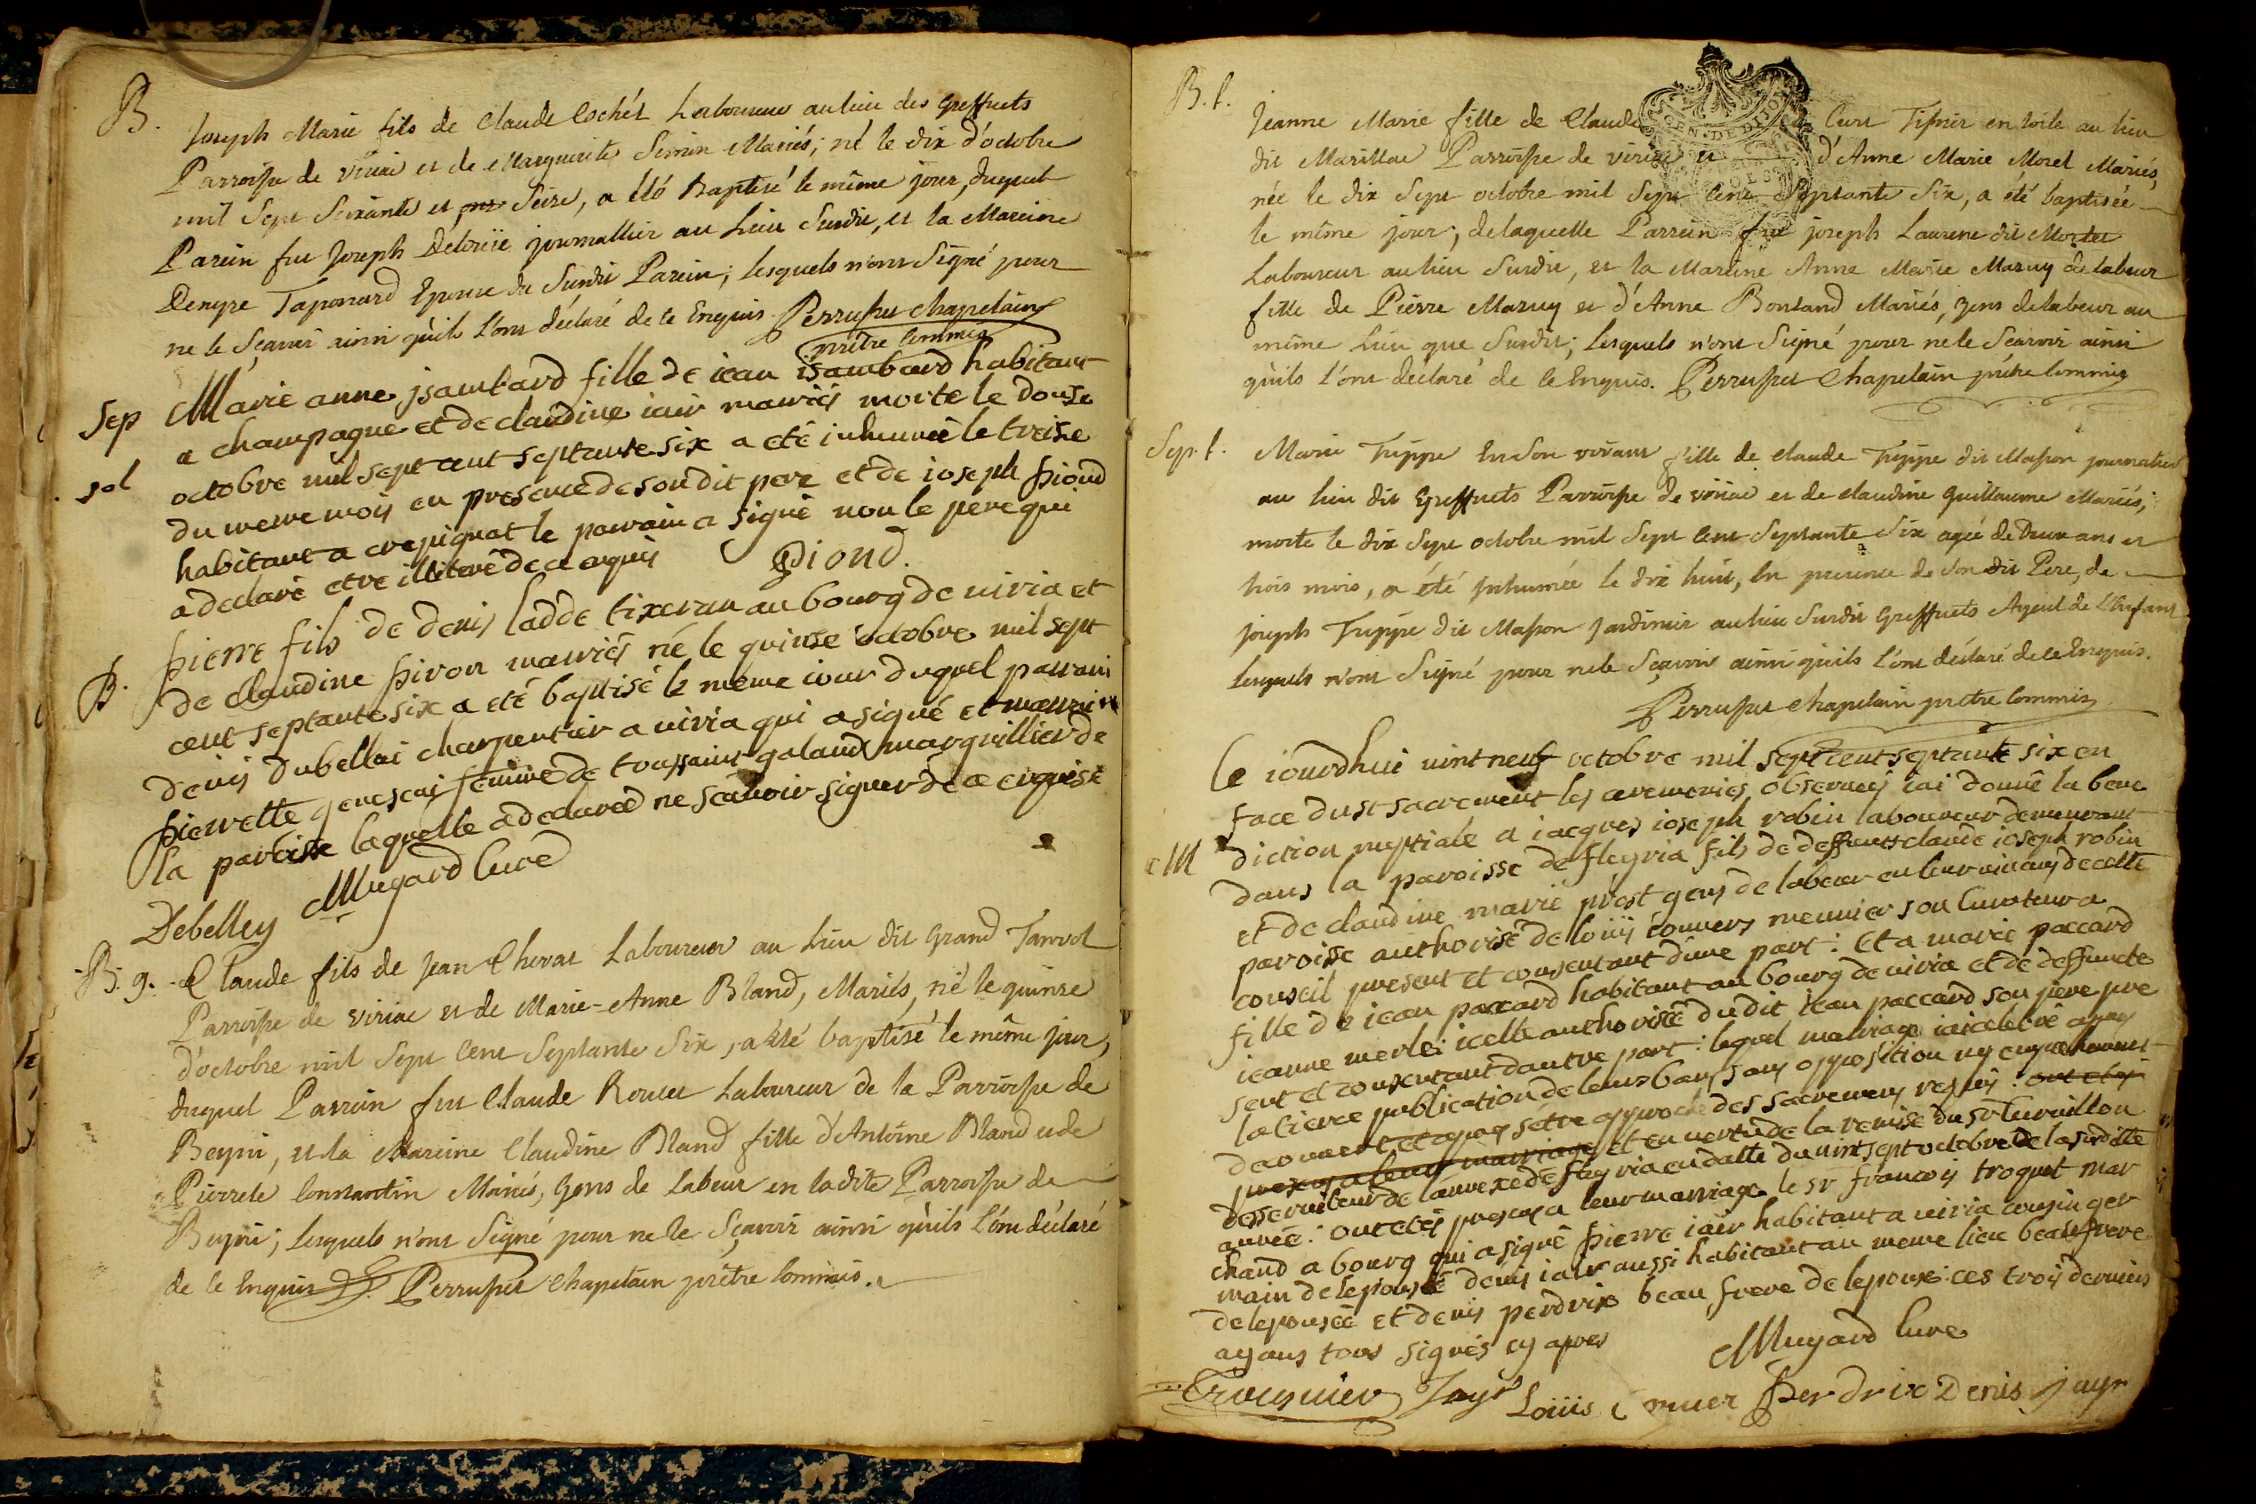 B.
Joseph Marie fils de Claude Cochet Laboureur au lieu des Greffiets
Parroisse de viriac et de Marguerite Simon Mariés; né le dix d'octobre
mil Sept Soixante et Seize, a été Baptisé le même jour, duquel
Parein fut Joseph journallier au Lieu Susdit, et la Mareine
Denyse Taponard Epouse du Susdit Parein; lesquels n'ont Signé pour
ne le Sçavoir ainsi qu'ils l'ont déclaré de ce Enquis Chapelain
prêtre Commis
Sep Marie anne jsambard fille de iean isambard habitant
a champagne et de claudine iair mariés morte le douse
octobre mil sept cent septante six a eté inhumée le treise
du meme mois en presence de son dit pere et de ioseph piond
habitant a crepignat le parrain a signé non le pere qui
a declaré etre illiteré de ce enquis Piond.
B. pierre fils de denis ladde tixeran au bourg de viria et
de claudine pivon mariés né le quinse octobre mil sept
cent septante six a eté baptisé le meme iour duquel parrain
denis dubellai charpentier a viria qui a signé et marraine
pierrette femme de toussaint galand marguillier de
la paroisse laquelle a declaree ne scavoir signer de ce enquise
Debelley Mugard Curé
B. g. Claude fils de Jean Chevat Laboureur au Lieu dit Grand Tanvol
Parroisse de viriac et de Marie-Anne Bland, Mariés, né le quinze
d'octobre mil Sept Cent Septante Six, a été baptisé le même jour,
duquel Parrein fut Claude Laboureur de la Parroisse de
Beyni, et la Mareine Claudine Bland fille d'Antoine Bland et de
Pierrete Constantin Mariés, Gens de Labeur en ladite Parroisse de
Beyni; lesquels n'ont Signé pour ne le Sçavoir ainsi qu'ils l'ont déclaré
de ce Enquis Chapelain prêtre Commis.
B. f.
Jeanne Marie fille de Claude Curt en toile au lieu
dit Marillac Parroisse de viriac et d'Anne Marie Morel Mariés,
née le dix Sept octobre mil Sept Cent Septante Six, a été baptisée
le même jour, delaquelle Parrein fut joseph Laurent dit Mortel
Laboureur au lieu Susdit, et la Mareine Anne Marie Maruy de labeur
fille de Pierre Maruy et d'Anne Bontand Mariés, gens de labeur au
même Lieu que Susdit; lesquels n'ont Signé pour ne le Scavoir ainsi
qu'ils l'ont déclaré de ce Enquis. Chapelain prêtre Commis
Sep. f. Marie Trippe En Son vivant fille de Claude Trippe dit Masson journalier
au lieu dit Greffiets Parroisse de viriac et de Claudine Guillaume Mariés;
morte le dix Sept octobre mil Sept Cent Septante Six agée de Deux ans et
trois mois, a été Inhumée le dix huit, En presence de Son dit Pere, de
joseph Trippe dit Masson Jardinier au lieu Susdit Greffiets Ayeul de L'Enfant
Lesquels n'ont Signé pour ne le Sçavoir ainsi qu'ils l'ont déclaré de ce Enquis.
Chapelain prêtre Commis
Ce iourdhui vint neuf octobre mil sept cent septante six en
face du st sacrement les ceremonies observeés iai donné la bene
M diction nuptiale a iacques ioseph robin laboureur demeurant
dans la paroisse de fleyria fils de deffunts claude ioseph robin
et de claudine marie prost gens de labeur en leur vivans de cette
paroisse authorisé de loüis convers meunier son curateur a
conseil present et consentant dune part: Et a marie paccard
fille de iean paccard habitant au bourg de viria et de deffuncte
ieanne merle: icelle authorisée du dit iean paccard son pere pre
sent et consentant dautre part: lequel mariage iai celebré apres
la tierce publication de leurs bans sans opposition ny
et apres sétre approché des sacremens requis: ont etes
presens a leur mariage et en vertu de la remise du sr
desserviteur de lannexe de fleyria en datte du vint sept octobre de la susditte
année: ont etés presens a leur mariage le sr francois troquet mar
chand a bourg qui a signé pierre iair habitant a viria cousin ger
main de lepousée denis iair aussi habitant au meme lieu beaufrere
de lepousée et denis perdrix beau frere de lepouse: ces trois derniers
ayans tous signés cy apres Mugard Curé
Jayr Loüis perdrix Denis jayr